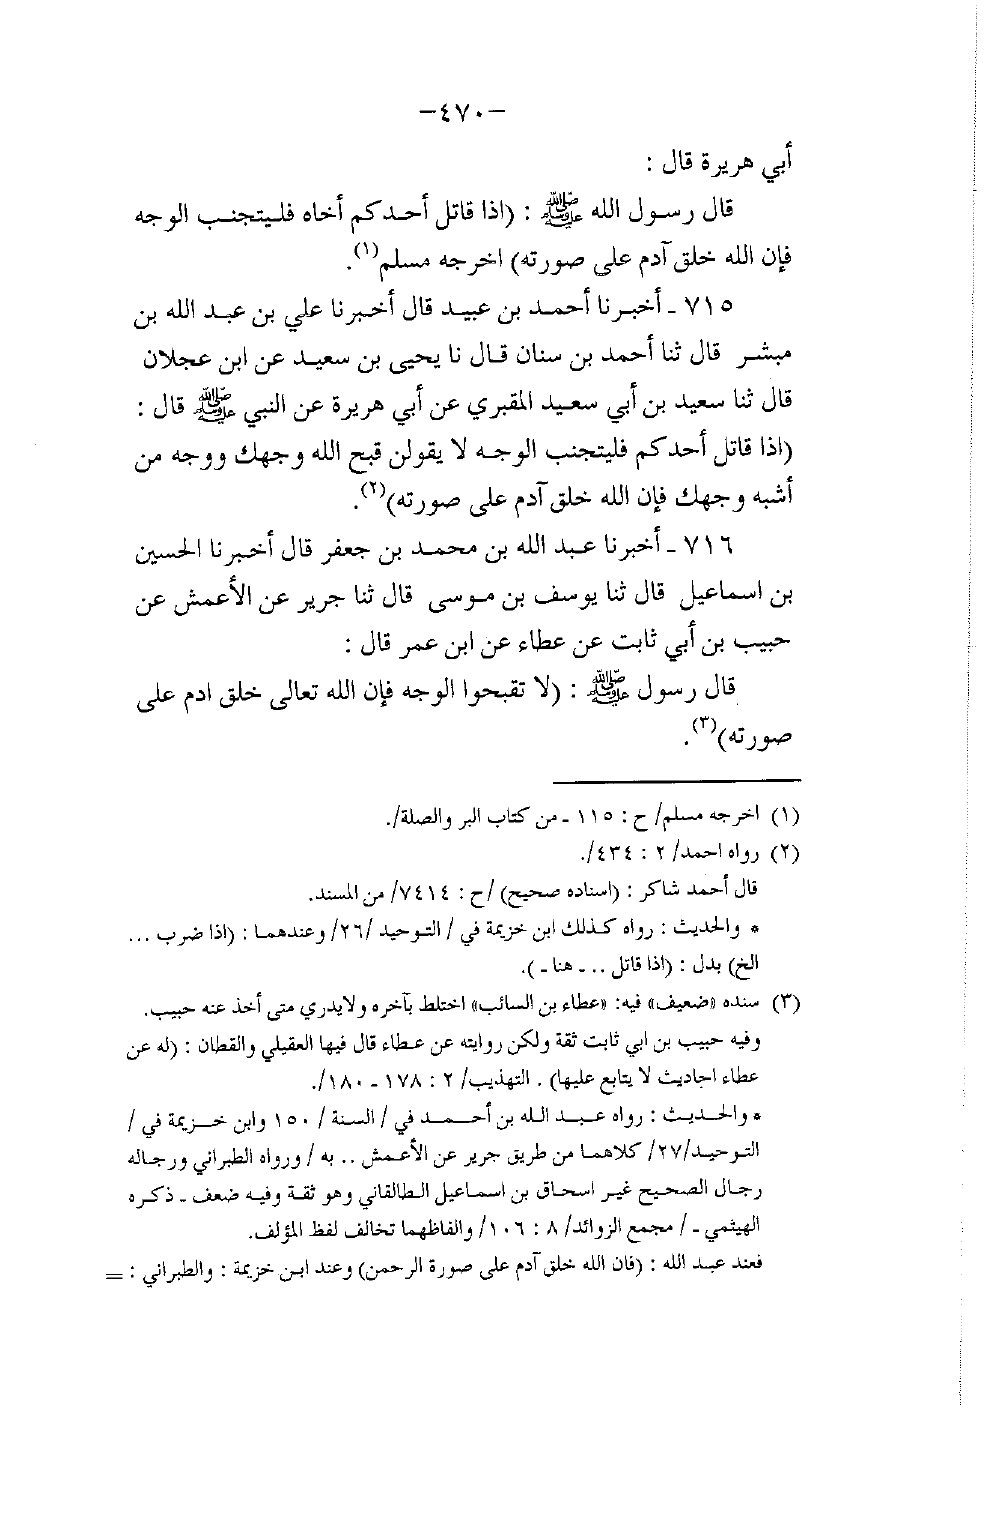 -٤٧٠-
أبي هريرة قال :
قال رسول الله ﷺ : (اذا قاتل أحدكم أخاه فليتجنب الوجه
فإن الله خلق آدم على صورته) اخرجه مسلم(١).
٧١٥ - أخبرنا أحمد بن عبيد قال أخبرنا علي بن عبد الله بن
مبشر قال ثنا أحمد بن سنان قال نا يحيى بن سعيد عن ابن عجلان
قال ثنا سعيد بن أبي سعيد المقبري عن أبي هريرة عن النبي ﷺ قال :
(اذا قاتل أحدكم فليتجنب الوجه لا يقولن قبح الله وجهك ووجه من
أشبه وجهك فإن الله خلق آدم على صورته)(٢).
٧١٦ - أخبرنا عبد الله بن محمد بن جعفر قال أخبرنا الحسين
بن اسماعيل قال ثنا يوسف بن موسى قال ثنا جرير عن الأعمش عن
حبيب بن أبي ثابت عن عطاء عن ابن عمر قال :
قال رسول ﷺ : (لا تقبحوا الوجه فإن الله تعالى خلق ادم على
صورته)(٣).
(١) اخرجه مسلم/ ح : ١١٥ - من كتاب البر والصلة/.
(٢) رواه احمد/ ٢ : ٤٣٤/.
قال أحمد شاكر : (اسناده صحيح) /ح : ٧٤١٤/ من المسند.
* والحديث : رواه كذلك ابن خزيمة في / التوحيد /٢٦/ وعندهما : (اذا ضرب ...
الخ) بدل : (اذا قاتل .. - هنا - ).
(٣) سنده «ضعيف» فيه: «عطاء بن السائب» اختلط بآخره ولايدري متى أخذ عنه حبيب.
وفيه حبيب بن ابي ثابت ثقة ولكن روايته عن عطاء قال فيها العقيلي والقطان : (له عن
عطاء احاديث لا يتابع عليها) . التهذيب/ ٢ : ١٧٨ - ١٨٠/.
* والحديث : رواه عبد الله بن أحمد في / السنة / ١٥٠ وابن خزيمة في /
التوحيد/٢٧/ كلاهما من طريق جرير عن الأعمش .. به / ورواه الطبراني ورجاله
رجال الصحيح غير اسحاق بن اسماعيل الطالقاني وهو ثقة وفيه ضعف - ذكره
الهيثمي - / مجمع الزوائد/ ٨ : ١٠٦/ والفاظهما تخالف لفظ المؤلف.
فعند عبد الله : (فان الله خلق آدم على صورة الرحمن) وعند ابن خزيمة : والطبراني : =